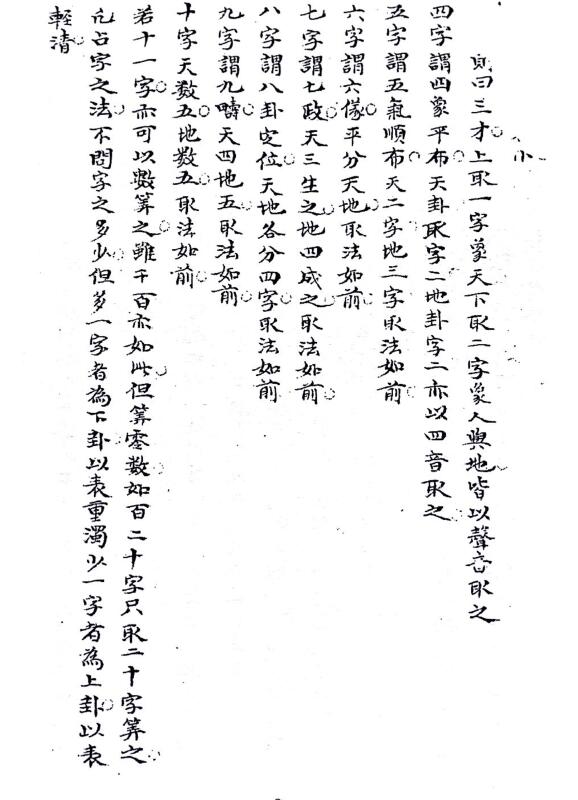 則曰三才上取一字象天下取二字象人與地皆以聲音取之
四字謂四象平布天卦取字二地卦字二亦以四音取之
五字謂五氣順布天二字地三字取法如前
六字謂六儀平分天地取法如前
七字謂七政天三生之地四成之取法如前
八字謂八卦定位天地各分四字取法如前
九字謂九疇天四地五取法如前
十字天数五地数五取法如前
若十一字亦可以數筭之雖千百亦如此但筭零数如百二十字只取二十字筭之
凡占字之法不問字之多少但多一字者為下卦以表重濁少一字者為上卦以表
輕清